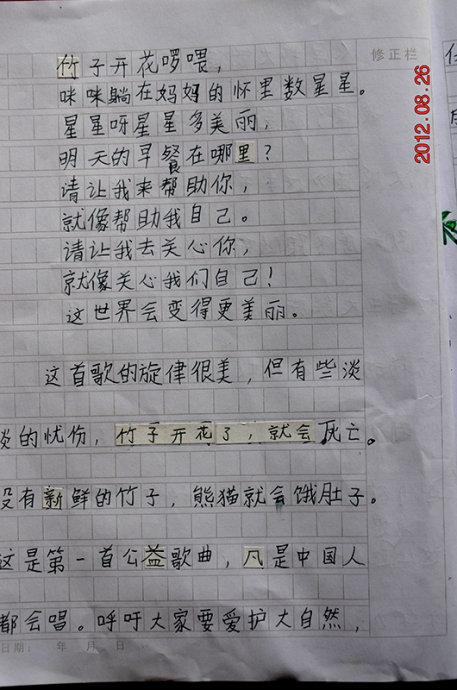 修正栏
2012.08.26
竹子开花啰喂，
咪咪躺在妈妈的怀里数星星。
星星呀星星多美丽，
明天的早餐在哪里？
请让我来帮助你，
就像帮助我自己。
请让我去关心你，
就像关心我们自己！
这世界会变得更美丽。
这首歌的旋律很美，但有些淡
淡的忧伤，竹子开花了，就会死亡。
没有新鲜的竹子，熊猫就会饿肚子。
这是第一首公益歌曲，凡是中国人
都会唱。呼吁大家要爱护大自然，
日期： 年 月 日